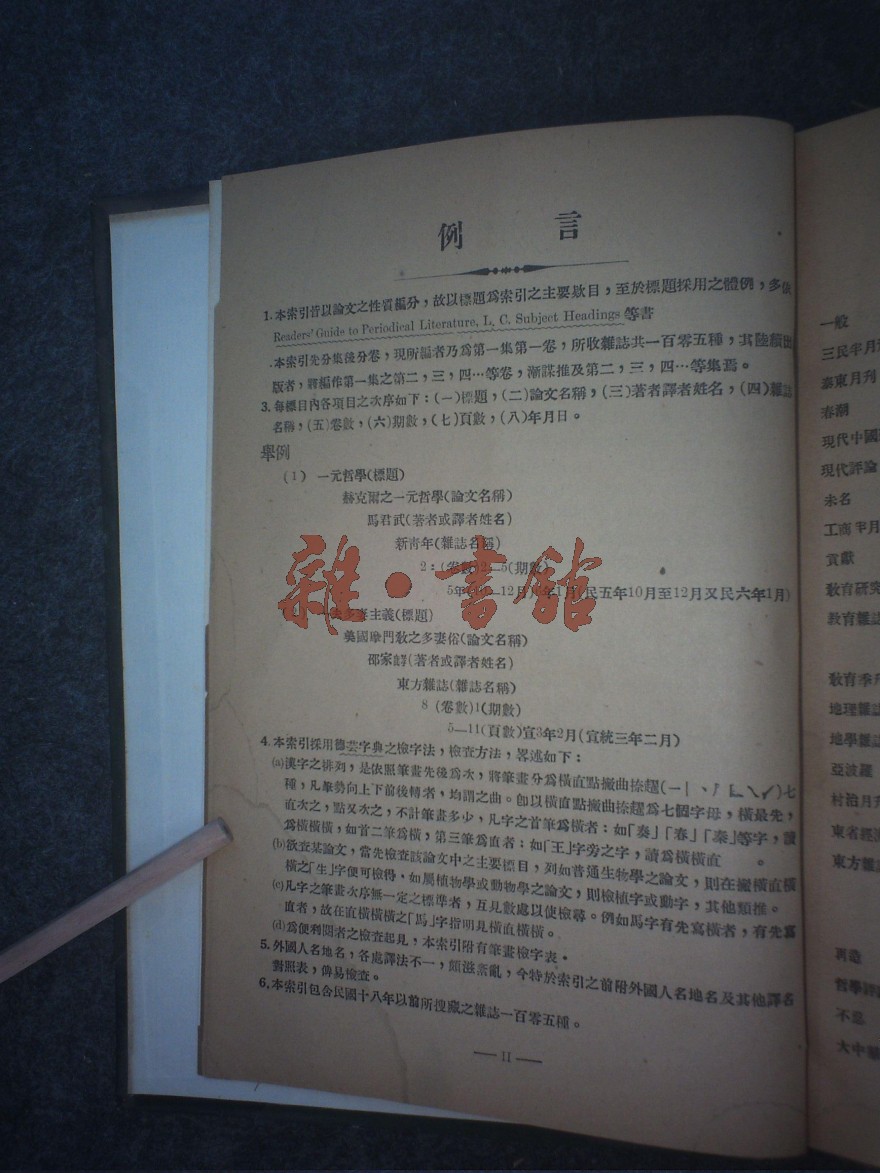 例言
1.本索引皆以論文之性質編分，故以標題爲索引之主要欵目，至於標題採用之體例，多依
Readers' Guide to Periodical Literature, L, C, Subject Headings 等書
本索引先分集後分卷，現所編者乃爲第一集第一卷，所收雜誌共一百零五種，其陸續出
版者，將編作第一集之第二，三，四…等卷，漸謀推及第二，三，四…等集焉。
3.每標目內各項目之次序如下：(一)標題，(二)論文名稱，(三)著者譯者姓名，(四)雜誌
名稱，(五)卷數，(六)期數，(七)頁數，(八)年月日。
舉例
(1) 一元哲學(標題)
赫克爾之一元哲學(論文名稱)
馬君武(著者或譯者姓名)
新靑年(雜誌名稱)
2：(卷數)2—5(期數)
5年10—12月 6年1月(民五年10月至12月又民六年1月)
一夫多妻主義(標題)
美國摩門敎之多妻俗(論文名稱)
邵家(著者或譯者姓名)
東方雜誌(雜誌名稱)
8 (卷數)1(期數)
5—11(頁數)宣3年2月(宣統三年二月)
4.本索引採用德芸字典之檢字法，檢查方法，畧述如下：
(a)漢字之排列，是依照筆畫先後爲次，將筆畫分爲橫直點撇曲捺趯七
種，凡筆勢向上下前後轉者，均謂之曲。卽以橫直點撇曲捺趯爲七個字母，橫最先，
直次之，點又次之，不計筆畫多少，凡字之首筆爲橫者：如「奏」「春」「秦」等字，讀
爲橫橫橫，如首二筆爲橫，第三筆爲直者：如「王」字旁之字，讀爲橫橫直。
(b)欲查某論文，當先檢查該論文中之主要標目，列如普通生物學之論文，則在撇橫直橫
橫之「生」字便可檢得．如屬植物學或動物學之論文，則檢植字或動字，其他類推。
(c)凡字之筆畫次序無一定之標準者，互見數處以使檢尋。例如馬字有先寫橫者，有先寫
直者，故在直橫橫橫之「馬」字指明見橫直橫橫。
(d)爲便利閱者之檢查起見，本索引附有筆畫檢字表．
5.外國人名地名，各處譯法不一，頗滋紊亂，今特於索引之前附外國人名地名及其他譯名
對照表，俾易檢查。
6.本索引包含民國十八年以前所搜藏之雜誌一百零五種。
— II —
雜·書館
一般
三民半月
秦東月刊
春潮
現代中國
現代評論
未名
工商半月
貢獻
敎育研究
敎育雜誌
敎育季
地理雜誌
地學雜誌
亞波羅
村治月
東省經
東方雜
再造
哲學評
不忍
大中華